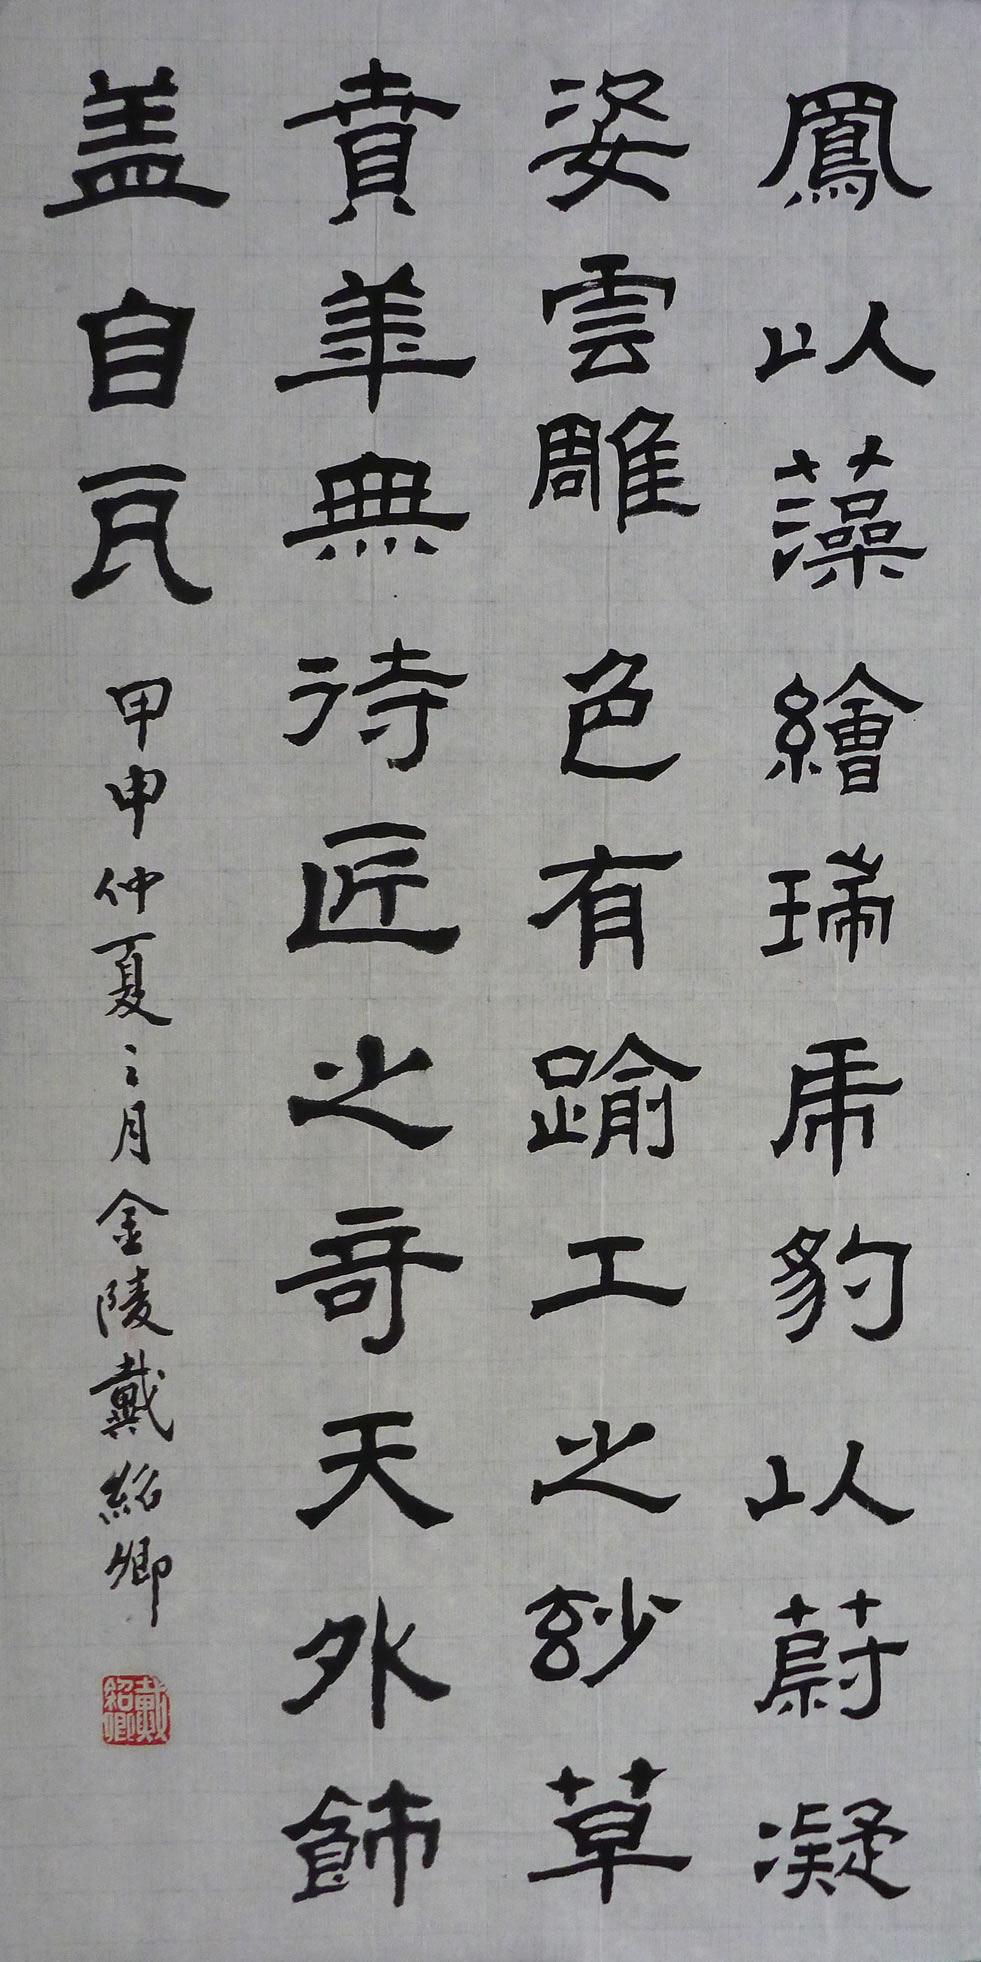 鳳以藻繪瑞虎豹以蔚凝
姿雲雕色有踰工之玅草
賁華無待匠之奇天外飾
盖自
甲申仲夏之月金陵戴紹卿
戴紹卿